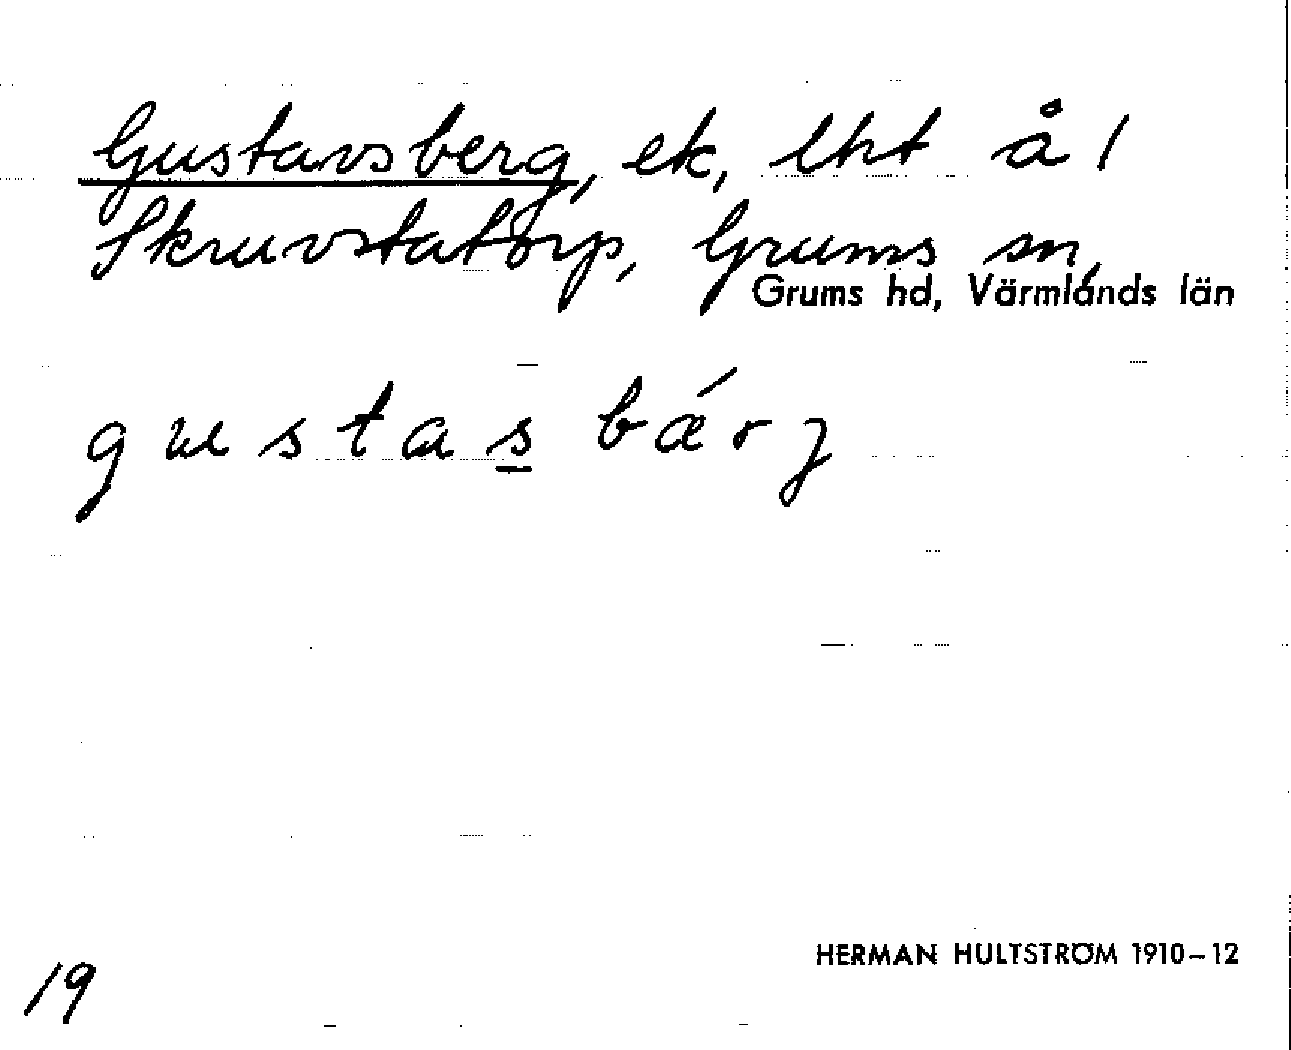 Gustavsberg, ek, lht å 1
Skruvstatorp, Grums sn,
Grums hd, Värmlands län
gustas bǽrj
HERMAN HULTSTRÖM 1910–12
19